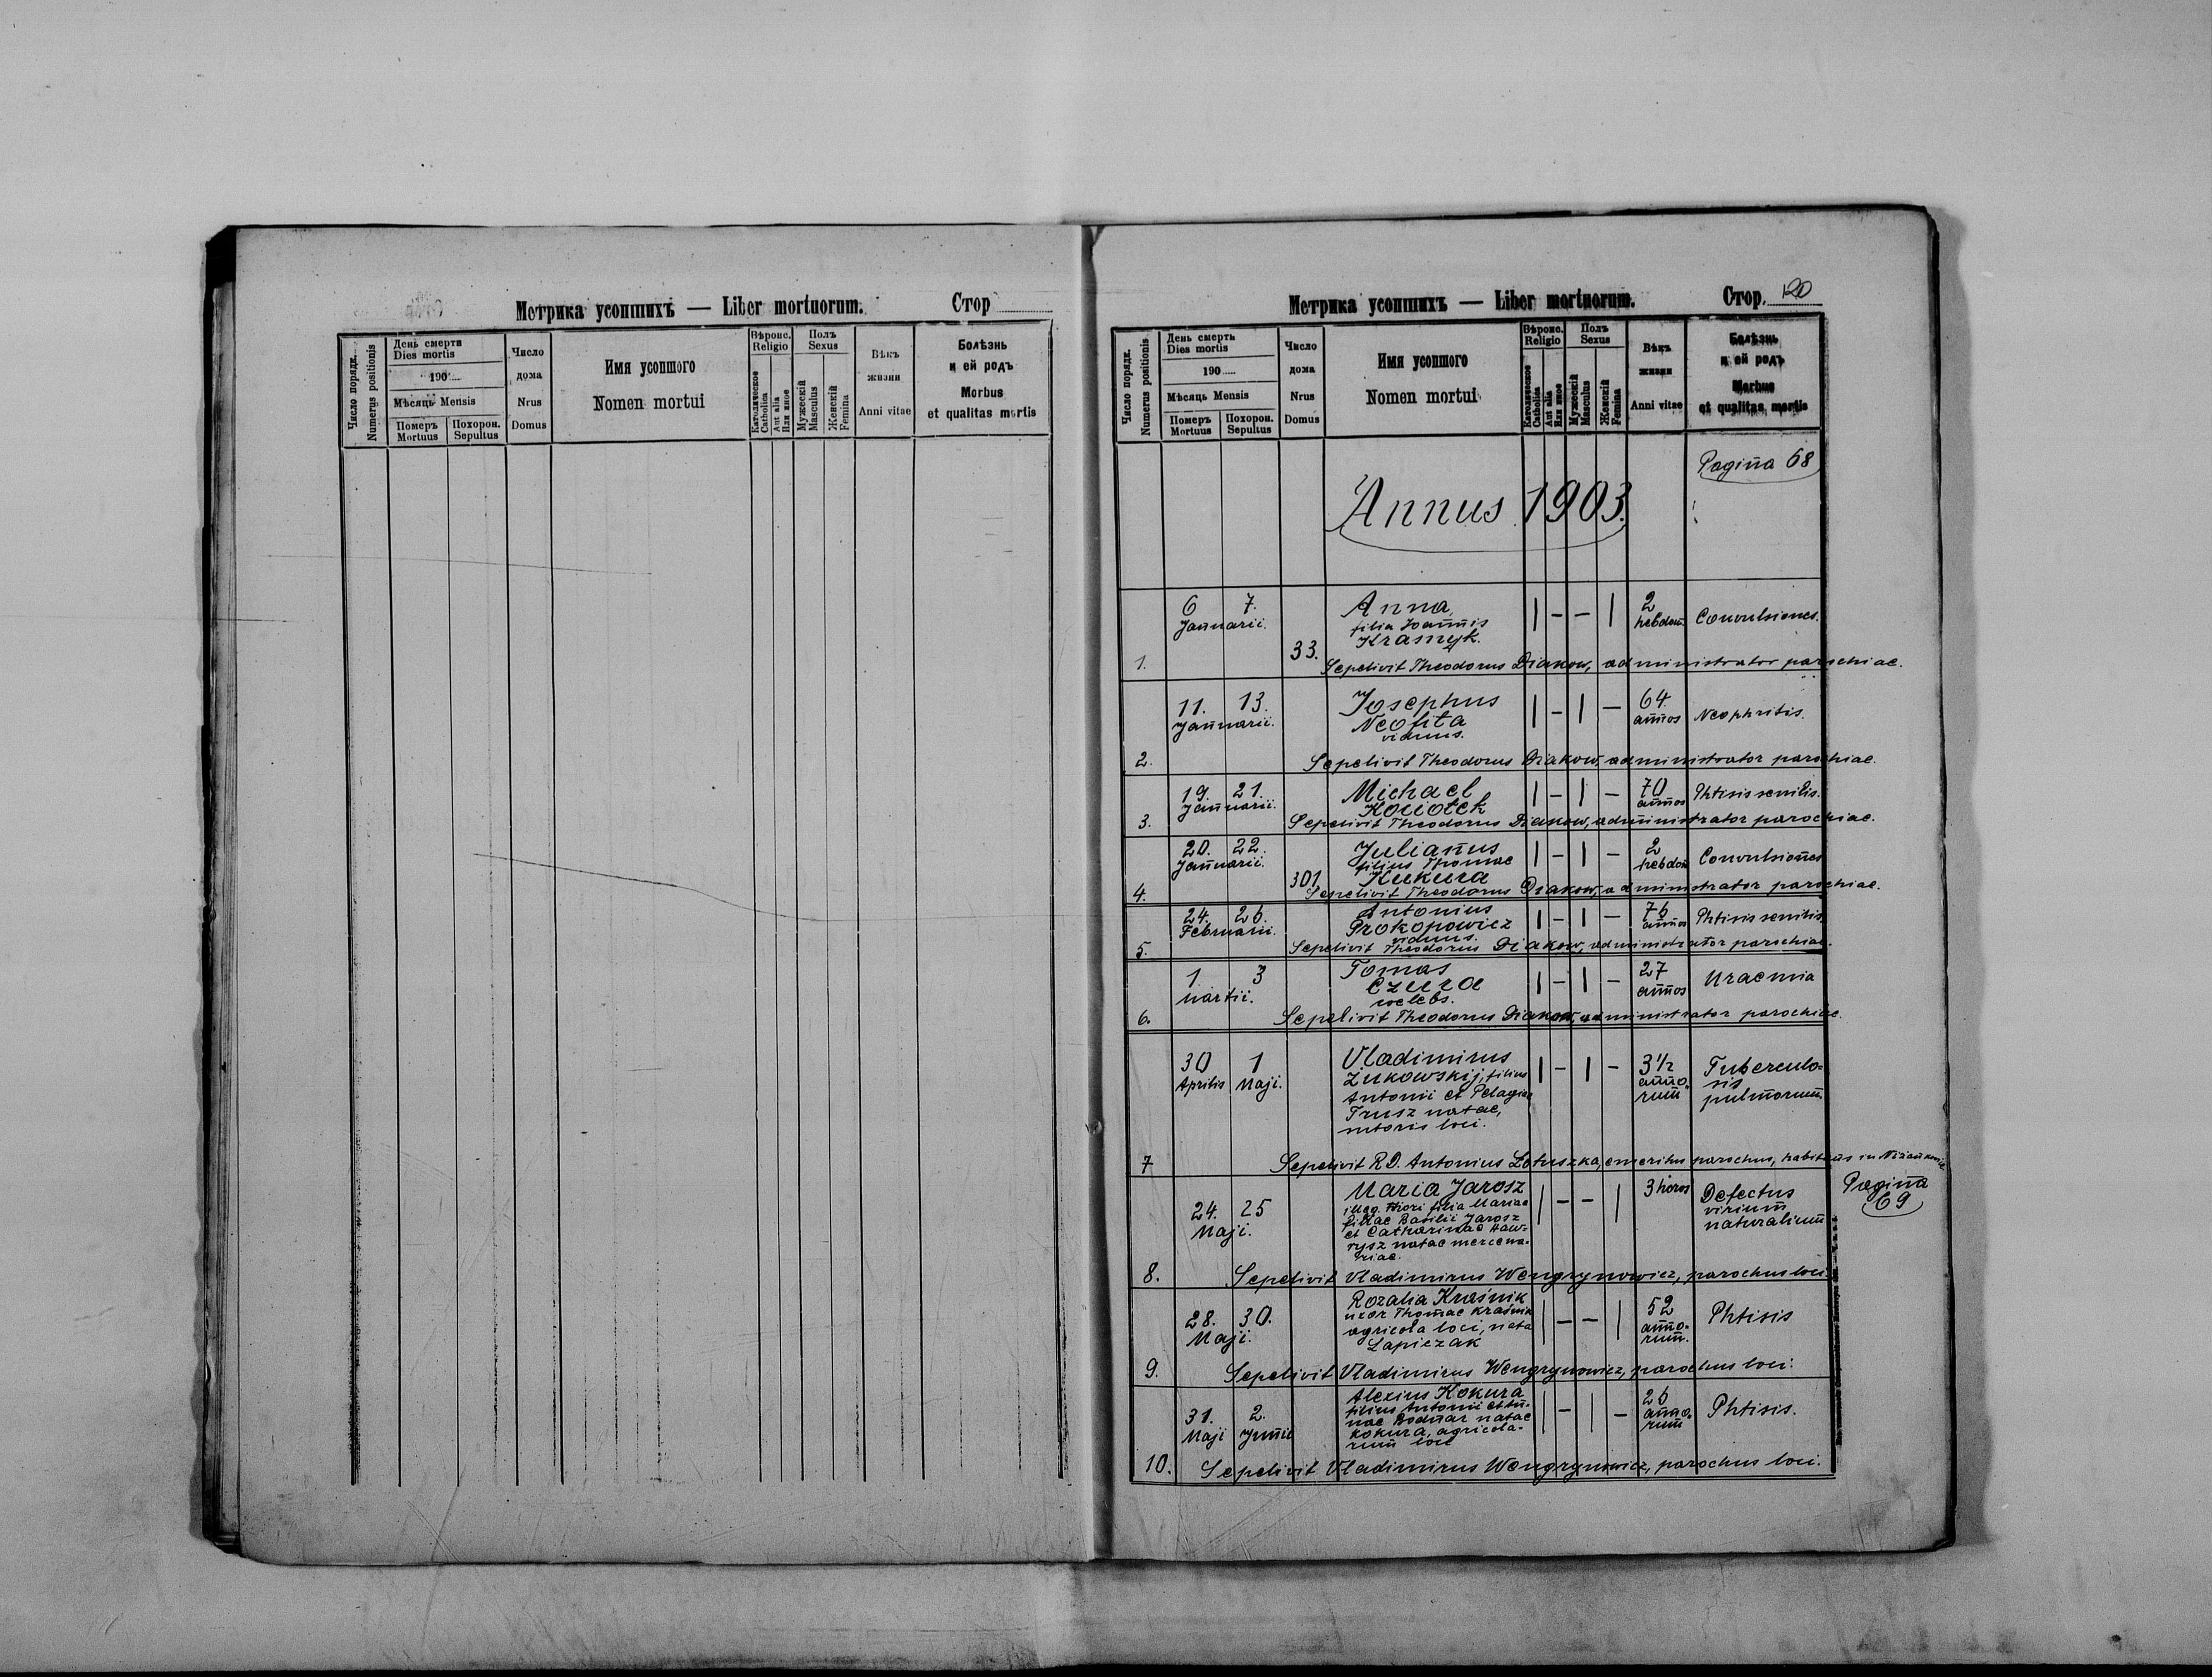 Метрика усопшихъ — Liber mortuorum.
Стор
Число порядк.
Numerus positionis
День смерти
Dies mortis
190
Мѣсяць Mensis
Померъ
Mortuus
Похорон.
Sepultus
Число
дома
Nrus
Domus
Имя усопшого
Nomen mortui
Вѣроис.
Religio
Католическое
Catholica
Aut alia
Или иное
Полъ
Sexus
Мужескій
Masculus
Женскій
Femina
Вѣкъ
жизни
Anni vitae
Болѣзнь
и ей родъ
Morbus
et qualitas mortis
Метрика усопшихъ — Liber mortuorum.
Стор. 120
Число порядк.
Numerus positionis
День смерть
Dies mortis
190
Мѣсяць Mensis
Померъ
Mortuus
Похорон.
Sepultus
Число
дома
Nrus
Domus
Имя усопшого
Nomen mortui
Вѣроис.
Religio
Католическое
Catholica
Aut alia
Или иное
Полъ
Sexus
Мужескій
Masculus
Женскій
Femina
Вѣкъ
жизни
Anni vitae
Болѣзнь
и ей родъ
Morbus
et qualitas mortis
Pagina 68
Annus 1903.
6 7. Anna, | – – | 2 Convulsiones.
Januarii. filia Joannis hebdom.
33. Krasnyk.
1. Sepelivit Theodorus Diakow, administrator parochiae.
11. 13. Josephus | – | – 64 Neophritis.
Januarii. Neofita annos
viduus.
2. Sepelivit Theodorus Diakow, administrator parochiae.
19. 21. Michael | – | – 70 Phtisis senilis.
Januarii. annos
3. Sepelivit Theodorus Diakow, administrator parochiae.
20. 22. Julianus | – | – 2 Convulsiones
Januarii. filius Thomae hebdom
301 Kukura
4. Sepelivit Theodorus Diakow, administrator parochiae.
24. 26. Antonius | – | – 76 Phtisis senilis.
Februarii. Prokopowicz annos
viduus.
5. Sepelivit Theodorus Diakow, administrator parochiae.
1 3 Tomas | – | – 27 Uraemia
Martii. Czura annos
coelebs.
6. Sepelivit Theodorus Diakow, administrator parochiae.
30 1 Vladimirus | – | – 3 1/2 Tuberculo-
Aprilis Maji. Zukowskij, filius anno- sis
Antonii et Pelagiae rum pulmonum
Trusz natae,
sutoris loci.
7 Sepelivit R.D. Antonius Lotuszka, emeritus parochus, habitans in
Pagina
69
Maria Jarosz | – – | 3 horas Defectus
24. 25 illeg. thori filia Mariae virium
Maji. filiae Basilii Jarosz naturalium
et Catharinae Haw-
rysz natae mercena-
riae.
8. Sepelivit Vladimirus Wengrynowicz, parochus loci.
Rozalia Kraśnik | – – | 52 Phtisis
28. 30. uxor Thomae Kraśnik anno-
Maji. agricola loci, nata rum.
Lapiczak
9. Sepelivit Vladimirus Wengrynowicz, parochus loci.
Alexius Kokura | – | – 26 Phtisis.
31. 2. filius Antonii et An- anno-
Maji Junii nae Bodnar natae rum
Kokura, agricola-
rum loci
10. Sepelivit Vladimirus Wengrynowicz, parochus loci.